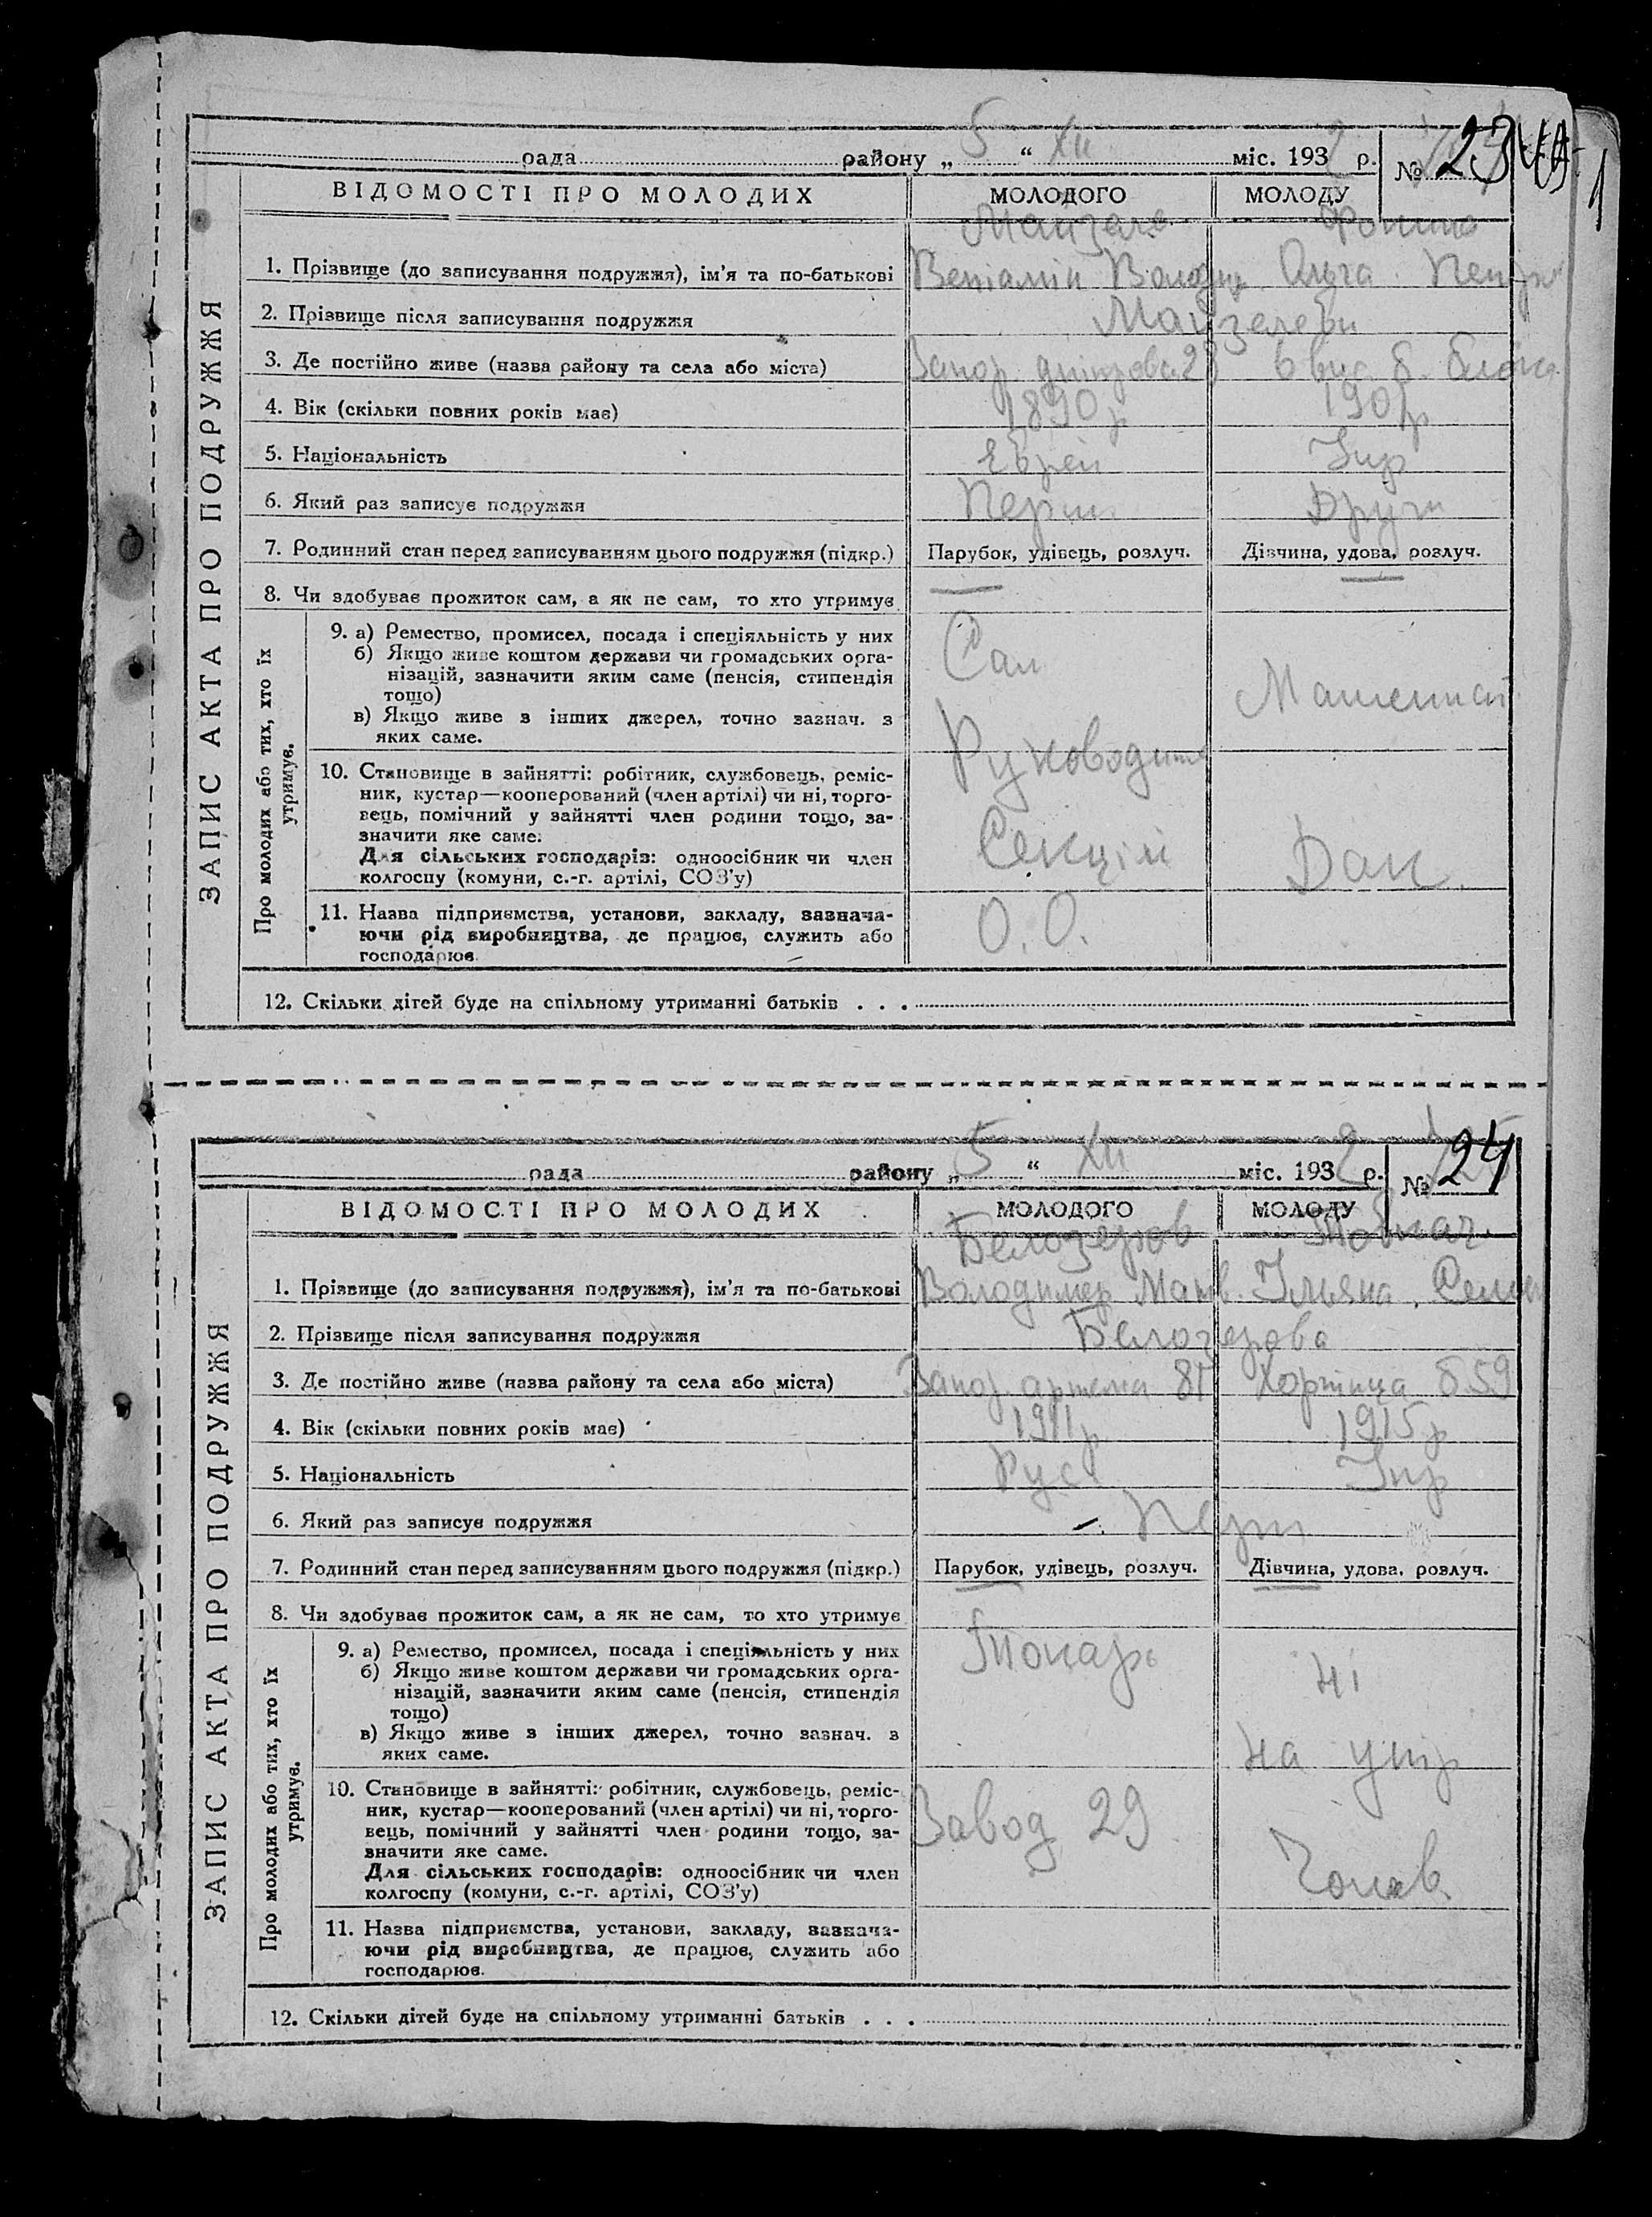 рада районu „ 5 “ XII міс. 1932 р. № 23
ВІДОМОСТІ ПРО МОЛОДИХ МОЛОДОГО МОЛОДУ
ЗАПИС АКТА ПРО ПОДРУЖЖЯ
1. Прізвище (до записування подружжя), ім’я та по-батькові Веніамін Ольга
2. Прізвище після записування подружжя
3. Де постійно живе (назва району та села або міста) Запор.
4. Вік (скільки повних років має) 1890 р
5. Національність Еврей Укр
6. Який раз записує подружжя Перш Други
7. Родинний стан перед записуванням цього подружжя (підкр.) Парубок, удівець, розлуч. Дівчина, удова, розлуч.
8. Чи здобуває прожиток сам, а як не сам, то хто утримує
Про молодих або тих, хто їх утримує.
9. а) Ремество, промисел, посада і спеціяльність у них
б) Якщо живе коштом держави чи громадських орга-
нізацій, зазначити яким саме (пенсія, стипендія
тощо)
в) Якщо живе з інших джерел, точно зазнач. з
яких саме.
Сам
10. Становище в зайнятті: робітник, службовець, реміс-
ник, кустар—кооперований (член артілі) чи ні, торго-
вець, помічний у зайнятті член родини тощо, за-
значити яке саме.
Для сільських господарів: одноосібник чи член
колгоспу (комуни, с.-г. артілі, СОЗ’у)
Секцій
11. Назва підприємства, установи, закладу, зазнача-
ючи рід виробництва, де працює, служить або
господарює.
О. О.
12. Скільки дітей буде на спільному утриманні батьків . . .
рада району „ 5 “ XII міс. 1932 р. № 24
ВІДОМОСТІ ПРО МОЛОДИХ МОЛОДОГО МОЛОДУ
ЗАПИС АКТА ПРО ПОДРУЖЖЯ
Белозеров
1. Прізвище (до записування подружжя), ім’я та по-батькові Володимер Матв.
2. Прізвище після записування подружжя Белозерова
3. Де постійно живе (назва району та села або міста) Запор. артема 81 Хортица
4. Вік (скільки повних років має) 1911 р 1915 р
5. Національність Рус. Укр
6. Який раз записує подружжя Перш
7. Родинний стан перед записуванням цього подружжя (підкр.) Парубок, удівець, розлуч. Дівчина, удова, розлуч.
8. Чи здобуває прожиток сам, а як не сам, то хто утримує
Про молодих або тих, хто їх утримує.
9. а) Ремество, промисел, посада і спеціяльність у них
б) Якщо живе коштом держави чи громадських орга-
нізацій, зазначити яким саме (пенсія, стипендія
тощо)
в) Якщо живе з інших джерел, точно зазнач. з
яких саме.
Токарь
ні
на утр
10. Становище в зайнятті: робітник, службовець, реміс-
ник, кустар—кооперований (член артілі) чи ні, торго-
вець, помічний у зайнятті член родини тощо, за-
значити яке саме.
Для сільських господарів: одноосібник чи член
колгоспу (комуни, с.-г. артілі, СОЗ’у)
Завод 29
11. Назва підприємства, установи, закладу, зазнача-
ючи рід виробництва, де працює, служить або
господарює.
12. Скільки дітей буде на спільному утриманні батьків . . .